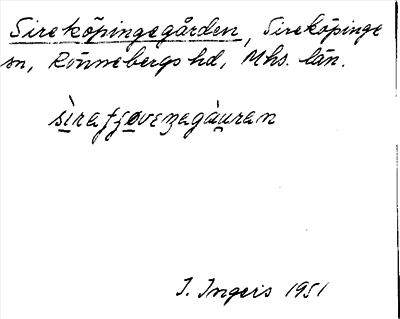 Sireköpingegården, Sireköpinge
sn, Rönnebergs hd, Mhs. län.
sìrafjøvezagàuran
I. Ingers 1951